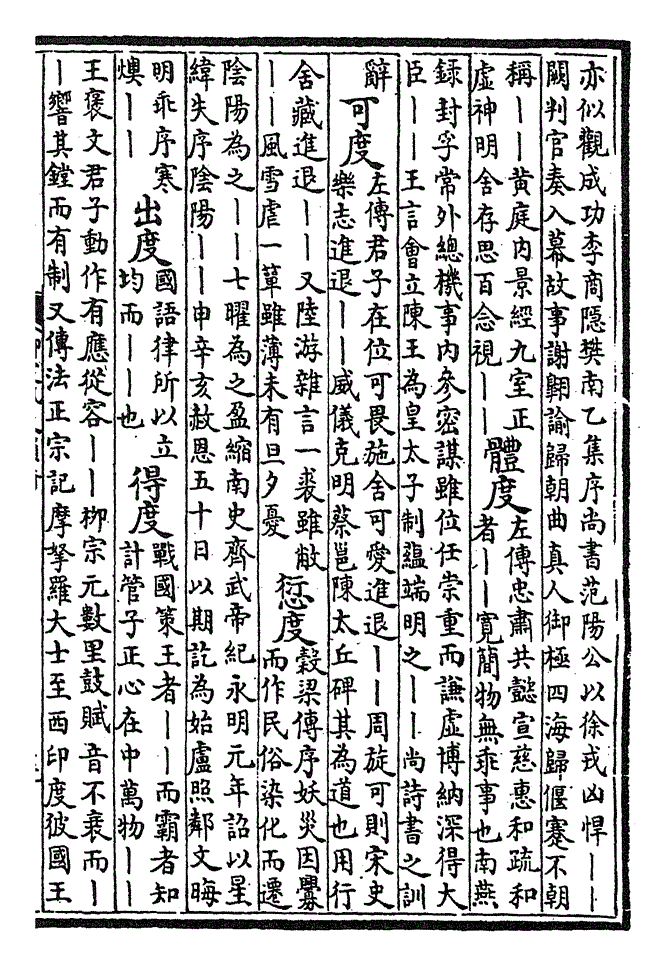 亦似觀成功李商隱樊南乙集序尚書范陽公以徐戎凶悍丨丨
闕判官奏入幕故事謝翺諭歸朝曲真人御極四海歸偃蹇不朝
稱丨丨黄庭内景經九室正
虛神明舍存思百念視丨丨
體度
左傳忠肅共懿宣慈惠和疏和
者丨丨寛簡物無乖事也南燕
録封孚常外總機事内參宻謀雖位任崇重而謙虛博納深得大
臣丨丨王言會立陳王為皇太子制蘊端明之丨丨尚詩書之訓
辭
可度
左傳君子在位可畏施舍可愛進退丨丨周旋可則宋史
樂志進退丨丨威儀克明蔡邕陳太丘碑其為道也用行
舍藏進退丨丨又陸游雜言一裘雖敝
丨丨風雪虐一簞雖薄未有旦夕憂
愆度
榖梁傳序妖災因釁
而作民俗染化而遷
陰陽為之丨丨七曜為之盈縮南史齊武帝紀永明元年詔以星
緯失序陰陽丨丨申辛亥赦恩五十日以期訖為始盧照鄰文晦
明乖序寒
燠丨丨
出度
國語律所以立
均而丨丨也
得度
戰國策王者丨丨而霸者知
計管子正心在中萬物丨丨
王褒文君子動作有應從容丨丨柳宗元數里鼓賦音不衰而丨
丨響其鏜而有制又傳法正宗記摩拏羅大士至西印度彼國王